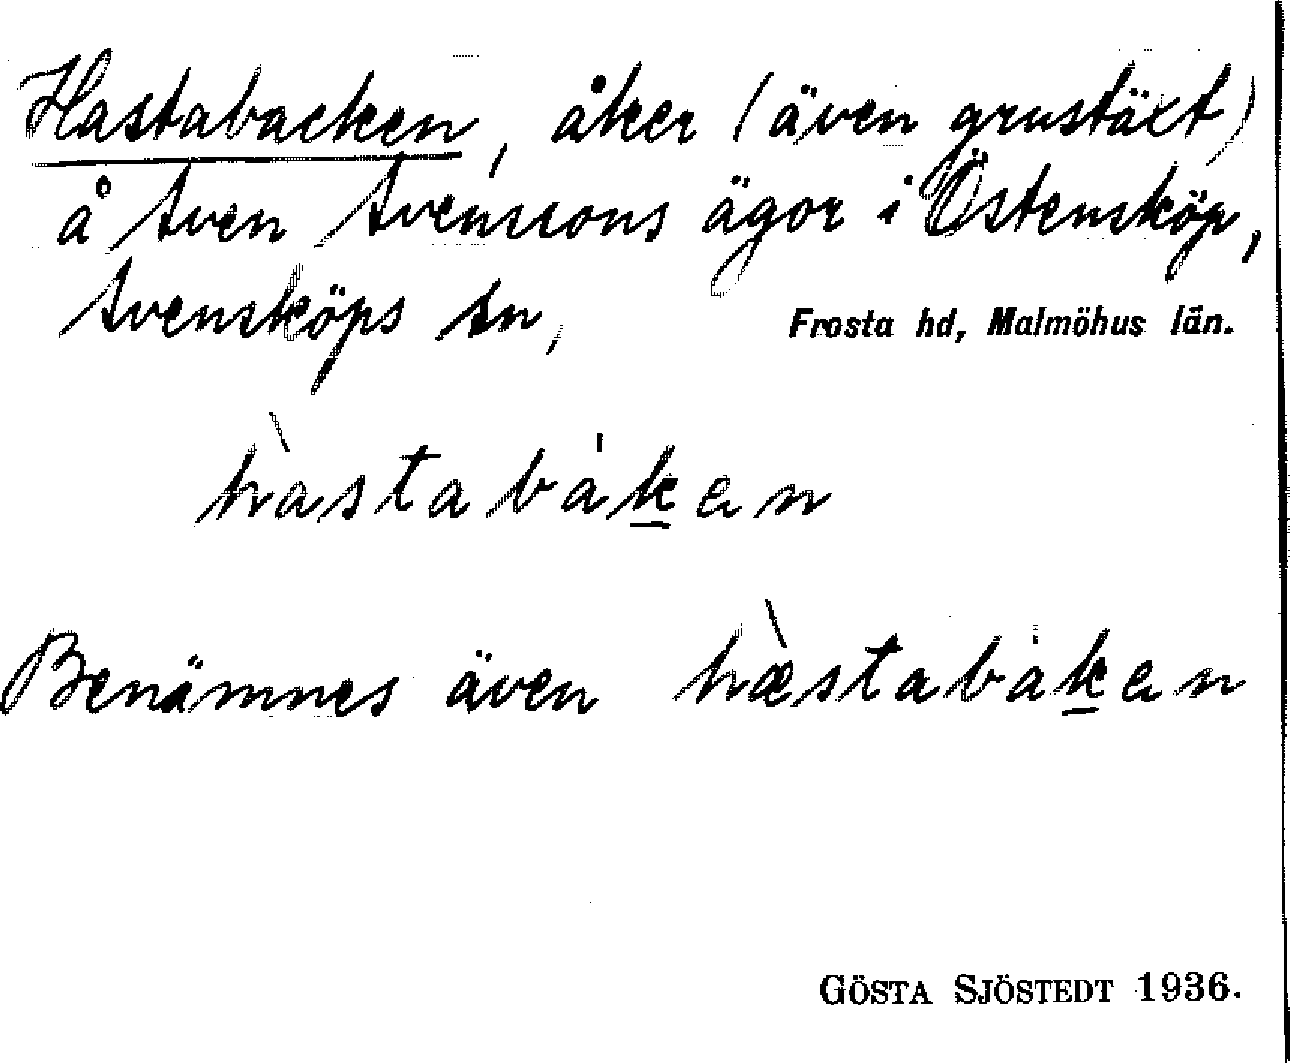 Hastabacken, åker (även grustäkt)
å Sven Svenssons ägor i Östensköp,
Svensköps sn, Frosta hd, Malmöhus län.
hàstabáken
Benämnes även hæ̀stabáken
GÖSTA SJÖSTEDT 1936.